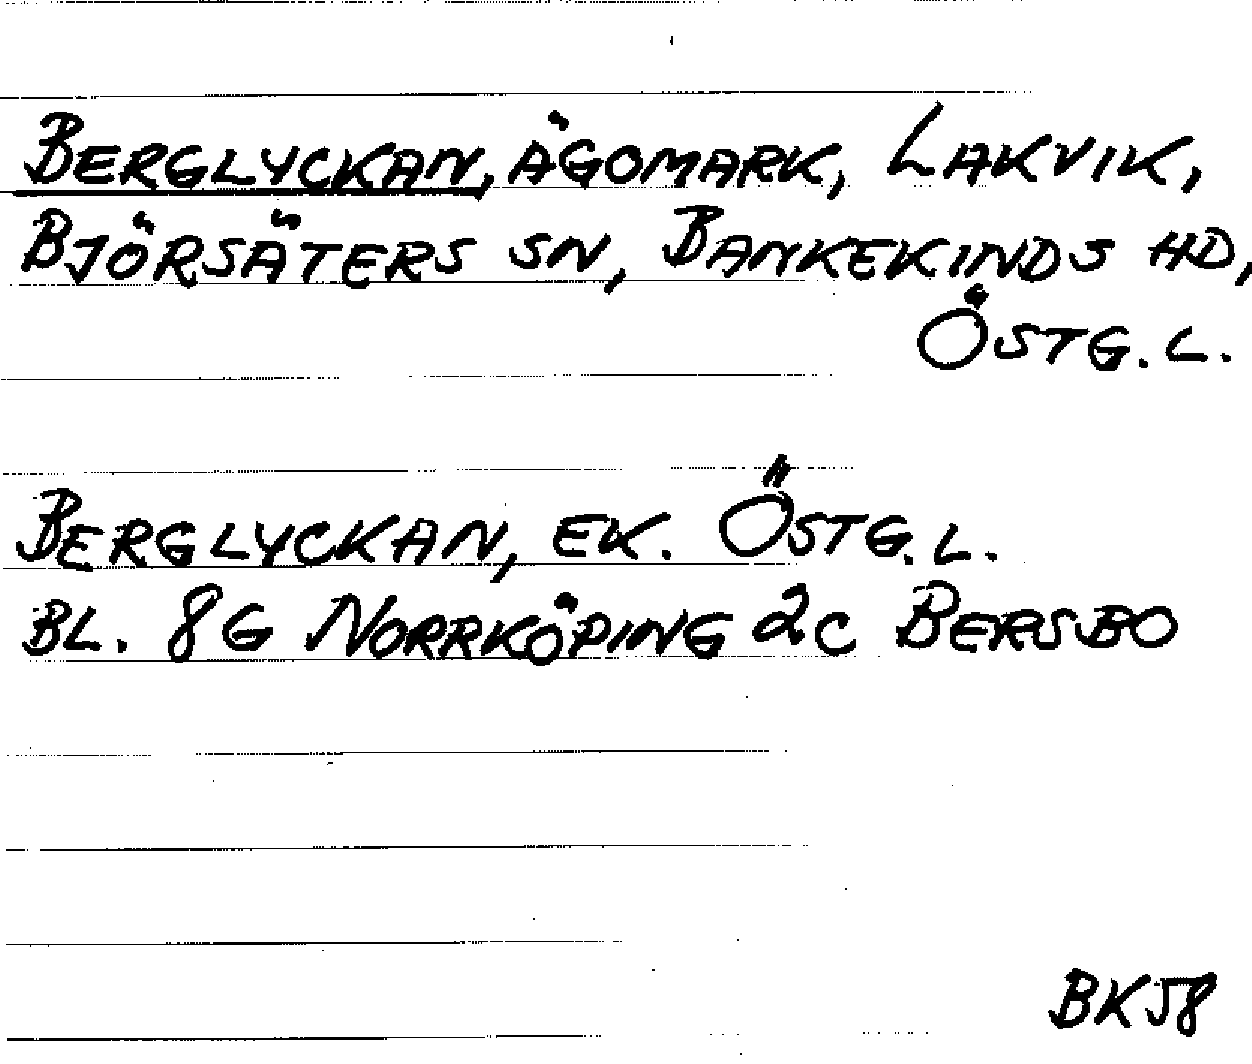 BERGLYCKAN, ÄGOMARK, LAKVIK,
BJÖRSÄTERS SN, BANKEKINDS HD,
ÖSTG. L.
BERGLYCKAN, EK. ÖSTG. L.
BL. 8G NORRKÖPING 2C BERSBO
BK58